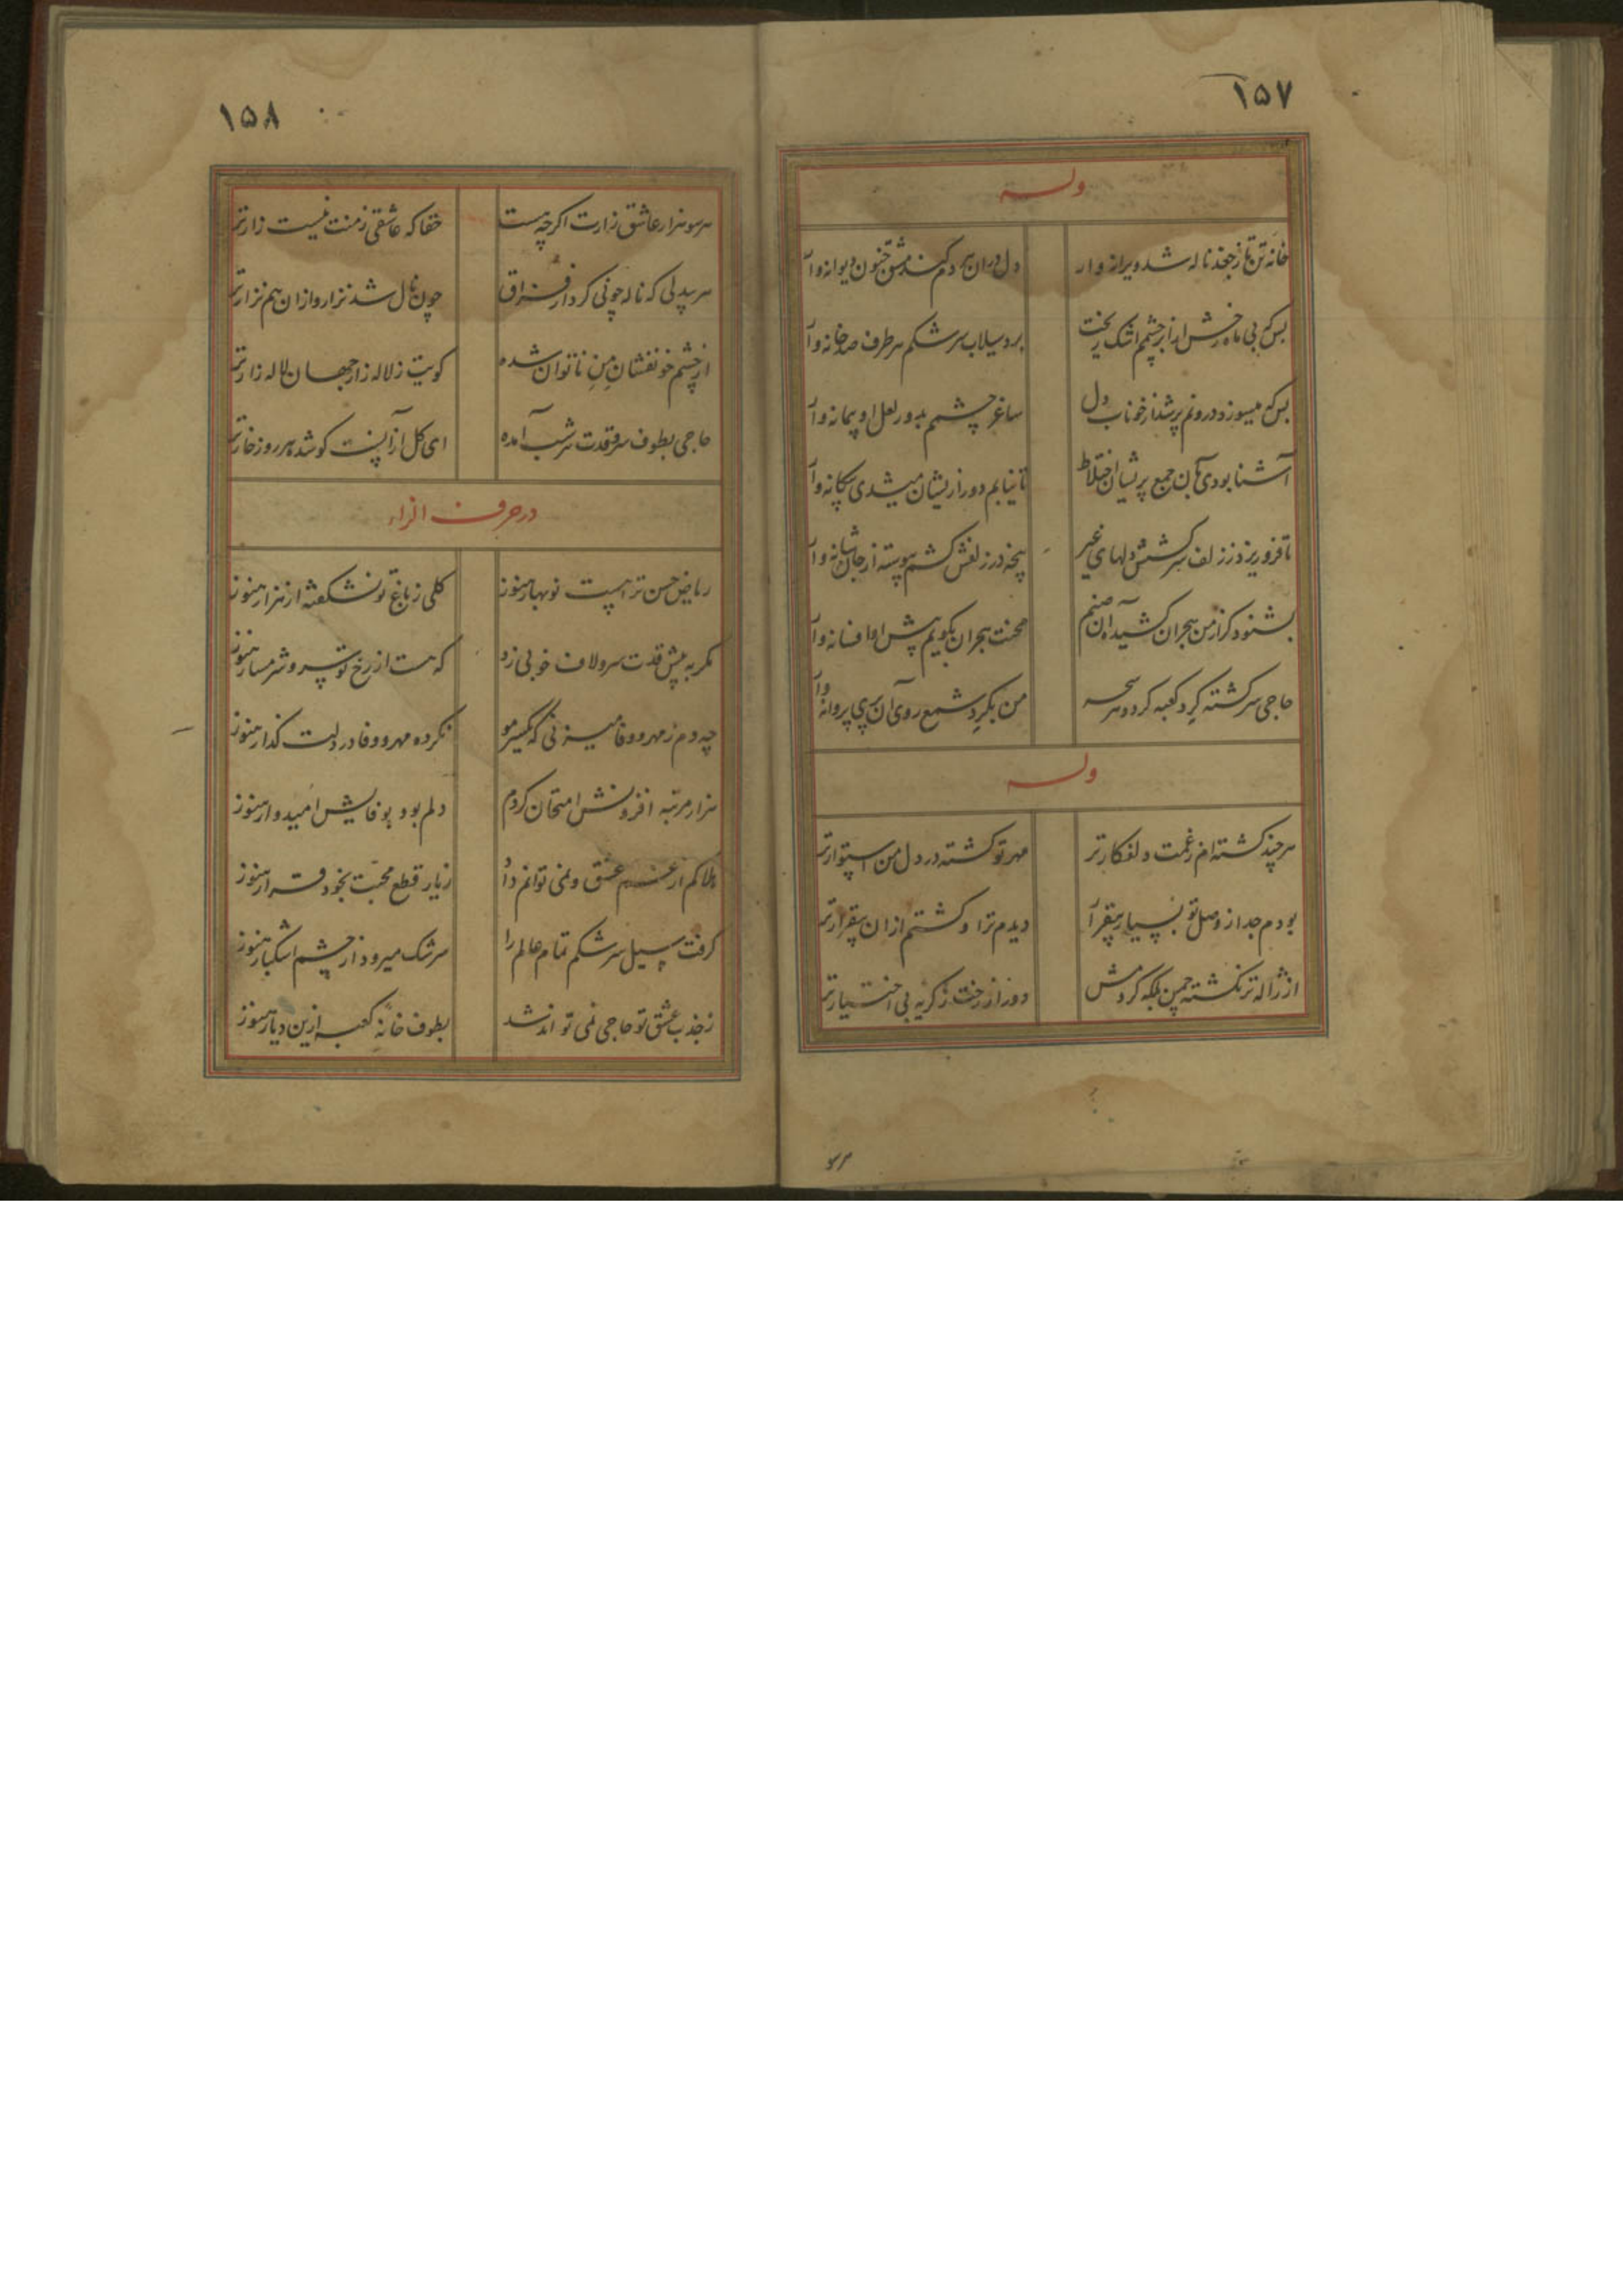 ١٥٧
وله
خانه تن تا ز جغد ناله شد ویرانه وار
دل دران هر دم کند مشق جنون دیوانه وار
بس که بی ماه رخش از ابر چشمم اشک ریخت
برد سیلاب سرشکم هر طرف صد خانه وار
بس که میسوزد درونم پر شد از خوناب دل
ساغر چشمم بدور لعل او پیمانه وار
آشنا بودی بآن جمع پریشان اختلاط
تا نیابم دور ازیشان میشدی بیکانه وار
تا فرو ریزد ز زلف سرکشش دلهای غیر
پنجه در زلفش کشم پیوسته از جان شانه وار
بشنود کر از من هجران کشیده آن صنم
محنت هجران بکویم پیش او افسانه وار
حاجی سرکشته کرد کعبه کردد هر سحر
من بکرد شمع روی آن پری پروانه وار
وله
هر چند کشته ام ز غمت دلفکارتر
مهر تو کشته در دل من استوارتر
بودم جدا ز وصل تو بسیار بیقرار
دیدم ترا و کشتم ازان بیقرارتر
از ژاله تر نکشته چمن بلکه کردمش
دور از رخت ز کریه بی اختیار تر
١٥٨
هر سو هزار عاشق زارت اکرچه هست
حقا که عاشقی ز منت نیست زارتر
هر بیدلی که ناله چو نی کرد از فراق
چون نال شد نزار و ازان هم نزارتر
از چشم خونفشان من ناتوان شده
کویت ز لاله زار جهان لاله زارتر
حاجی بطوف مرقدت هر شب آمده
ای کل از آنست کو شده هر روز خارتر
در حرف الزاء
ریاض حسن ترا هست نوبهار هنوز
کلی ز باغ تو نشکفته از هزار هنوز
مکر به پیش قدت سرو لاف خوبی زد
که هست از رخ تو سرو شرمسار هنوز
چه دم ز مهر و وفا میزنی که یکسر مو
نکرده مهر و وفا در دلت کذار هنوز
هزار مرتبه افزونش امتحان کردم
دلم بود بوفایش امیدوار هنوز
هلاکم از غم عشق و نمی توانم داد
ز یار قطع محبت بخود قرار هنوز
کرفت سیل سرشکم تمام عالم را
سرشک میرود از چشم اشکبار هنوز
ز جذب عشق تو حاجی نمی تواند شد
بطوف خانه کعبه ازین دیار هنوز